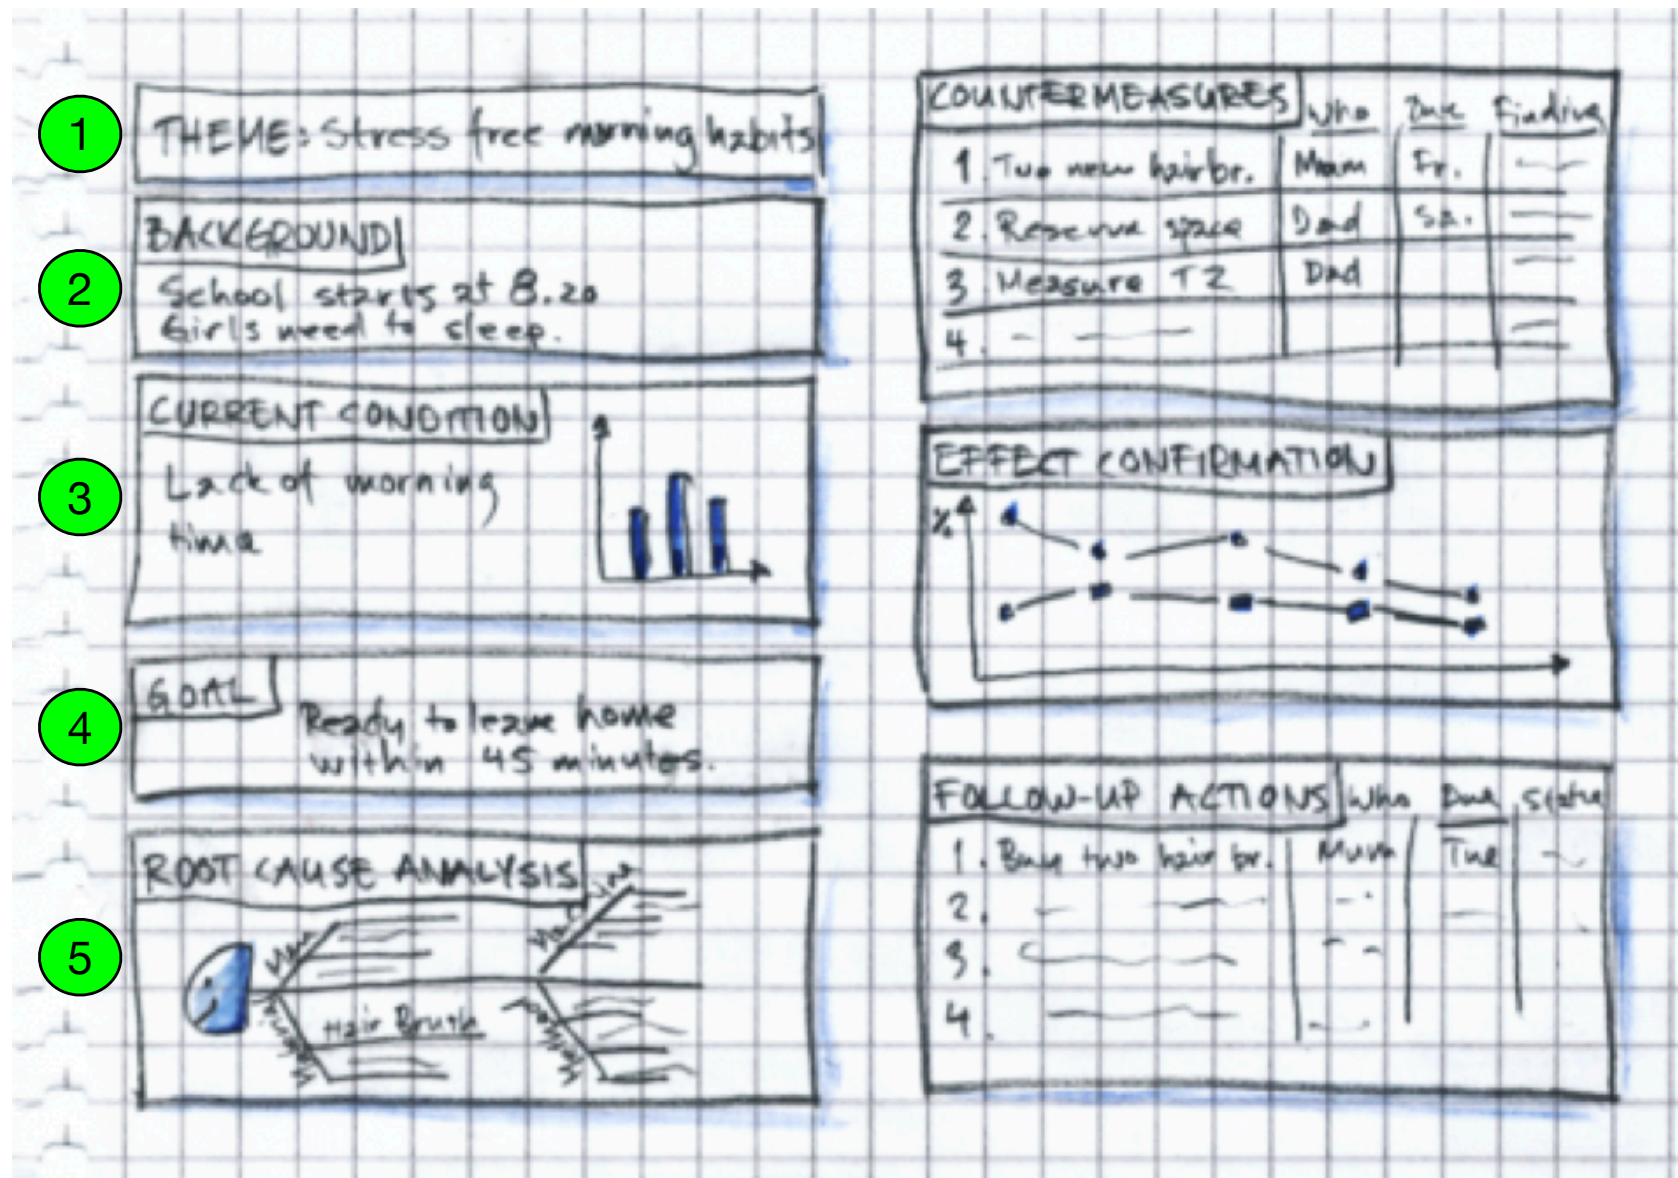 1
THEME: Stress free morning habits
2
BACKGROUND
School starts at 8.20
Girls need to sleep.
3
CURRENT CONDITION
Lack of morning
time
4
GOAL
Ready to leave home
within 45 minutes.
5
ROOT CAUSE ANALYSIS
Man
Hair Brush
COUNTERMEASURES Who Due Finding
1. Two new hairbr. Mam Fr.
2. Reserve space Dad Sa.
3 Measure T2 Dad
4.
EFFECT CONFIRMATION
%
FOLLOW-UP ACTIONS Who Due Status
1. Buy two hair br. Mum Tue
2.
3.
4.